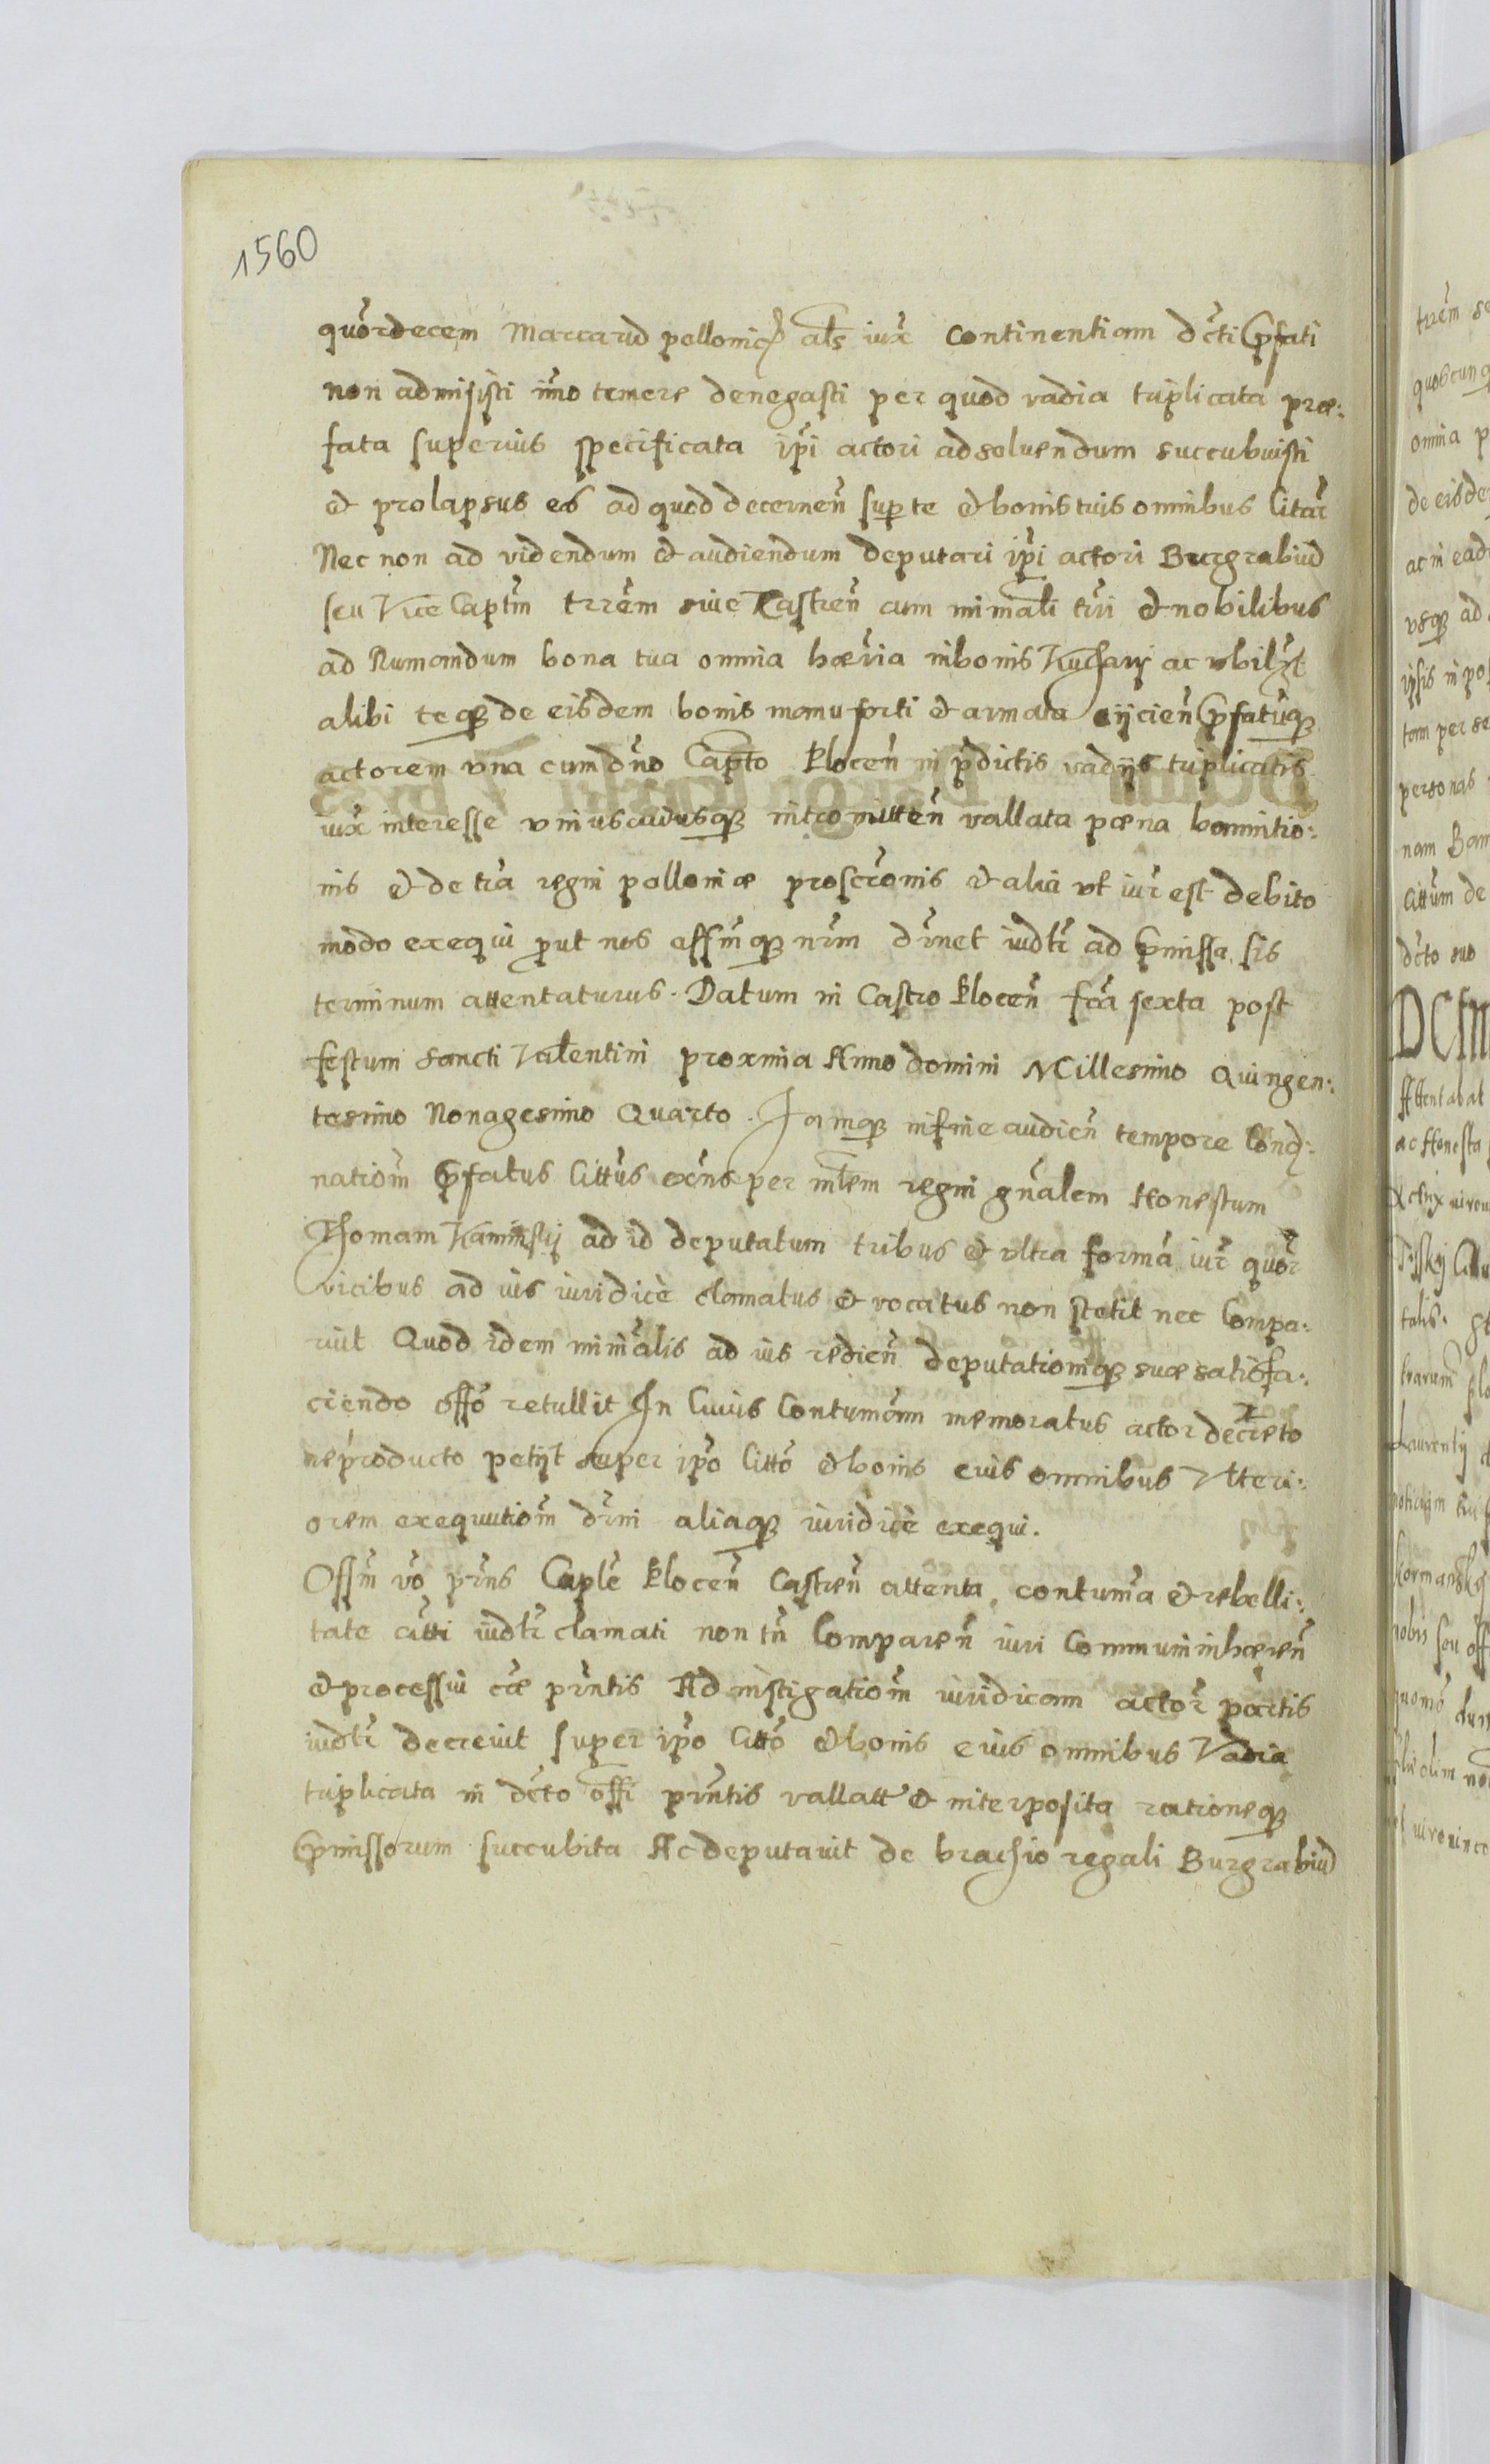 1560
quōrdecem Marcarū polloniċ als iux̄ continentiam dc̄ti p̄fati
non admisisti im̄o temere denegasti per quod vadia triplicata præ:
fata superius specificata ip̄i actori ad soluendum succubuisti
et prolapsus es ad quod decernen̄ super te et bonis tuis omnibus Citar̄
Nec non ad videndum et audiendum deputari ip̄i actori Burgrabiū
seu Vice Captm̄ trrēm siue Castren̄ cum min̄ali tr̄i et nobilibus
ad Rumandum bona tua omnia hær̄ia in bonis Kuchary ac vbilꝫt
alibi teqꝫ de eisdem bonis manu forti et armata eijcien̄ p̄fatūqꝫ
actorem vna cum dn̄o Capto Plocen̄ in p̄dictis vadijs triplicatis
iux̄ interesse vniuscuiusqꝫ intromitten̄ vallata pœna bannitio:
nis et de tr̄a regni polloniæ proscrōnis et alia vt iur̄ est debito
modo exequi prut nos offm̄qꝫ nr̄m dr̄net iudtr̄ ad p̄missa sis
terminum attentaturus. Datum in Castro Plocen̄ fr̄a sexta post
festum sancti Valentini proxima Anno domini Millesimo Quingen:
tesimo Nonagesimo Quarto. Iamqꝫ in fine audien̄ tempore Cond:
nationm̄ p̄fatus Cittūs exn̄s per mltem regni gn̄alem Honestum
Thomam Kaminskij ad id deputatum tribus et vltra formā iur̄ quōr
vicibus ad ius iuridicè clamatus et vocatus non stetit nec Compa:
ruit Quod idem min̄alis ad ius redien̄ deputationiqꝫ suæ satisfa:
ciendo offō retullit In Cuius Contumām memoratus actor decreto
reproducto petijt super ip̄o Cittō et bonis eius omnibus Vlteri:
orem exequutionm̄ dr̄ni aliaqꝫ iuridicè exequi.
Offm̄ vō prn̄s Caplē Plocen̄ Castren̄ attenta contumā et rebelli:
tate citti iudtr̄ clamati non tn̄ Comparen̄ iuri Communi inhæren̄
et processui cæ prn̄tis Ad instigationm̄ iuridicam actor̄ partis
iudtr̄ decreuit super ip̄o Cittō et bonis eius omnibus Vadia
triplicata in dc̄to offi prn̄tis vallatt et interposita rationeqꝫ
p̄missorum succubita Ac deputauit de brachio regali Burgrabiū